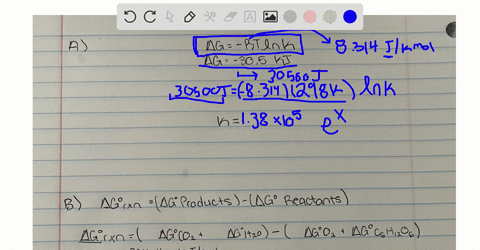 A)
ΔG=-RTlnK → 8.314 J/kmol
ΔG=-30.5 KJ
↳ 30500J
30500J=(-8.314)(298K) lnK
K=1.38 x10⁵ eˣ
B) ΔG°rxn =(ΔG°Products)-(ΔG° Reactants)
ΔG°rxn =( ΔG°CO₂ + ΔG°H₂O)-( ΔG°O₂ + ΔG°C₆H₁₂O₆)